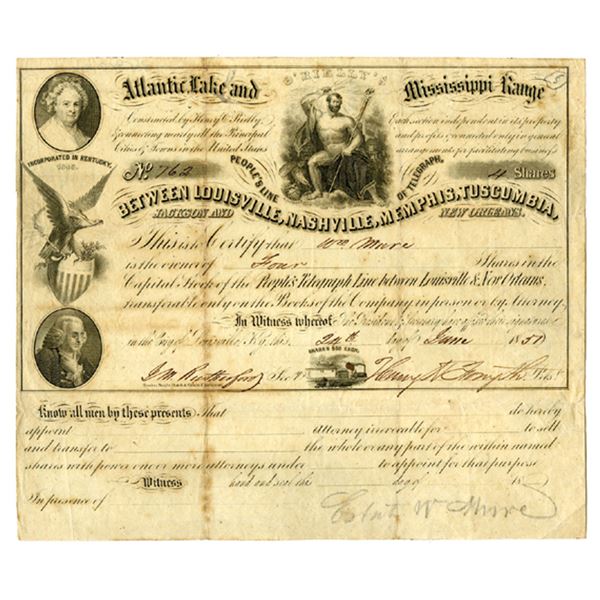 O'RIELLY'S
Atlantic Lake and Mississippi Range
Constructed by Henry O'Rielly Each section independent in its property
Connecting nearly all the Principal and profits connected only in general
Cities & Towns in the United States arrangements for facilitating business
INCORPORATED IN KENTUCKY,
No. 762 PEOPLE'S LINE OF TELEGRAPH, 4 Shares
BETWEEN LOUISVILLE, NASHVILLE, MEMPHIS, TUSCUMBIA,
JACKSON AND NEW ORLEANS.
This is to Certify that Wm Mure
is the owner of Four Shares in the
Capital Stock of the People's Telegraph Line between Louisville & New Orleans.
transferable only on the Books of the Company in person or by Attorney.
In Witness whereof The President & Secretary have affixed their signatures
in the City of Louisville Ky. this 24th day of June 1851
SHARES $50 EACH.
Secy. Pres't
Know all men by these presents That do hereby
appoint Attorney irrevocable for to sell
and transfer to the whole or any part of the within named
shares with power one or more attorneys under to appoint for that purpose
Witness hand and seal the day of 18
In presence of
W Mure